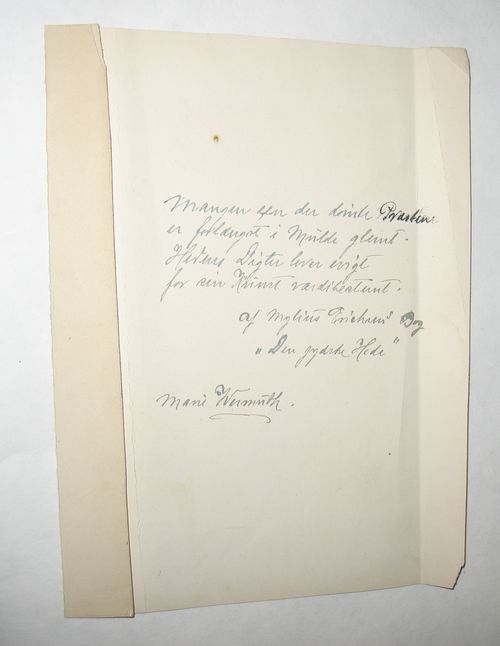 Mangen een der dømte Præsten
er forlængst i Mulde glemt.
Hedens Digter lever evigt
for sin Kunst værdibestemt.
af Mylius Erichsens Bog
„Den jydske Hede"
Marie Wermuth.